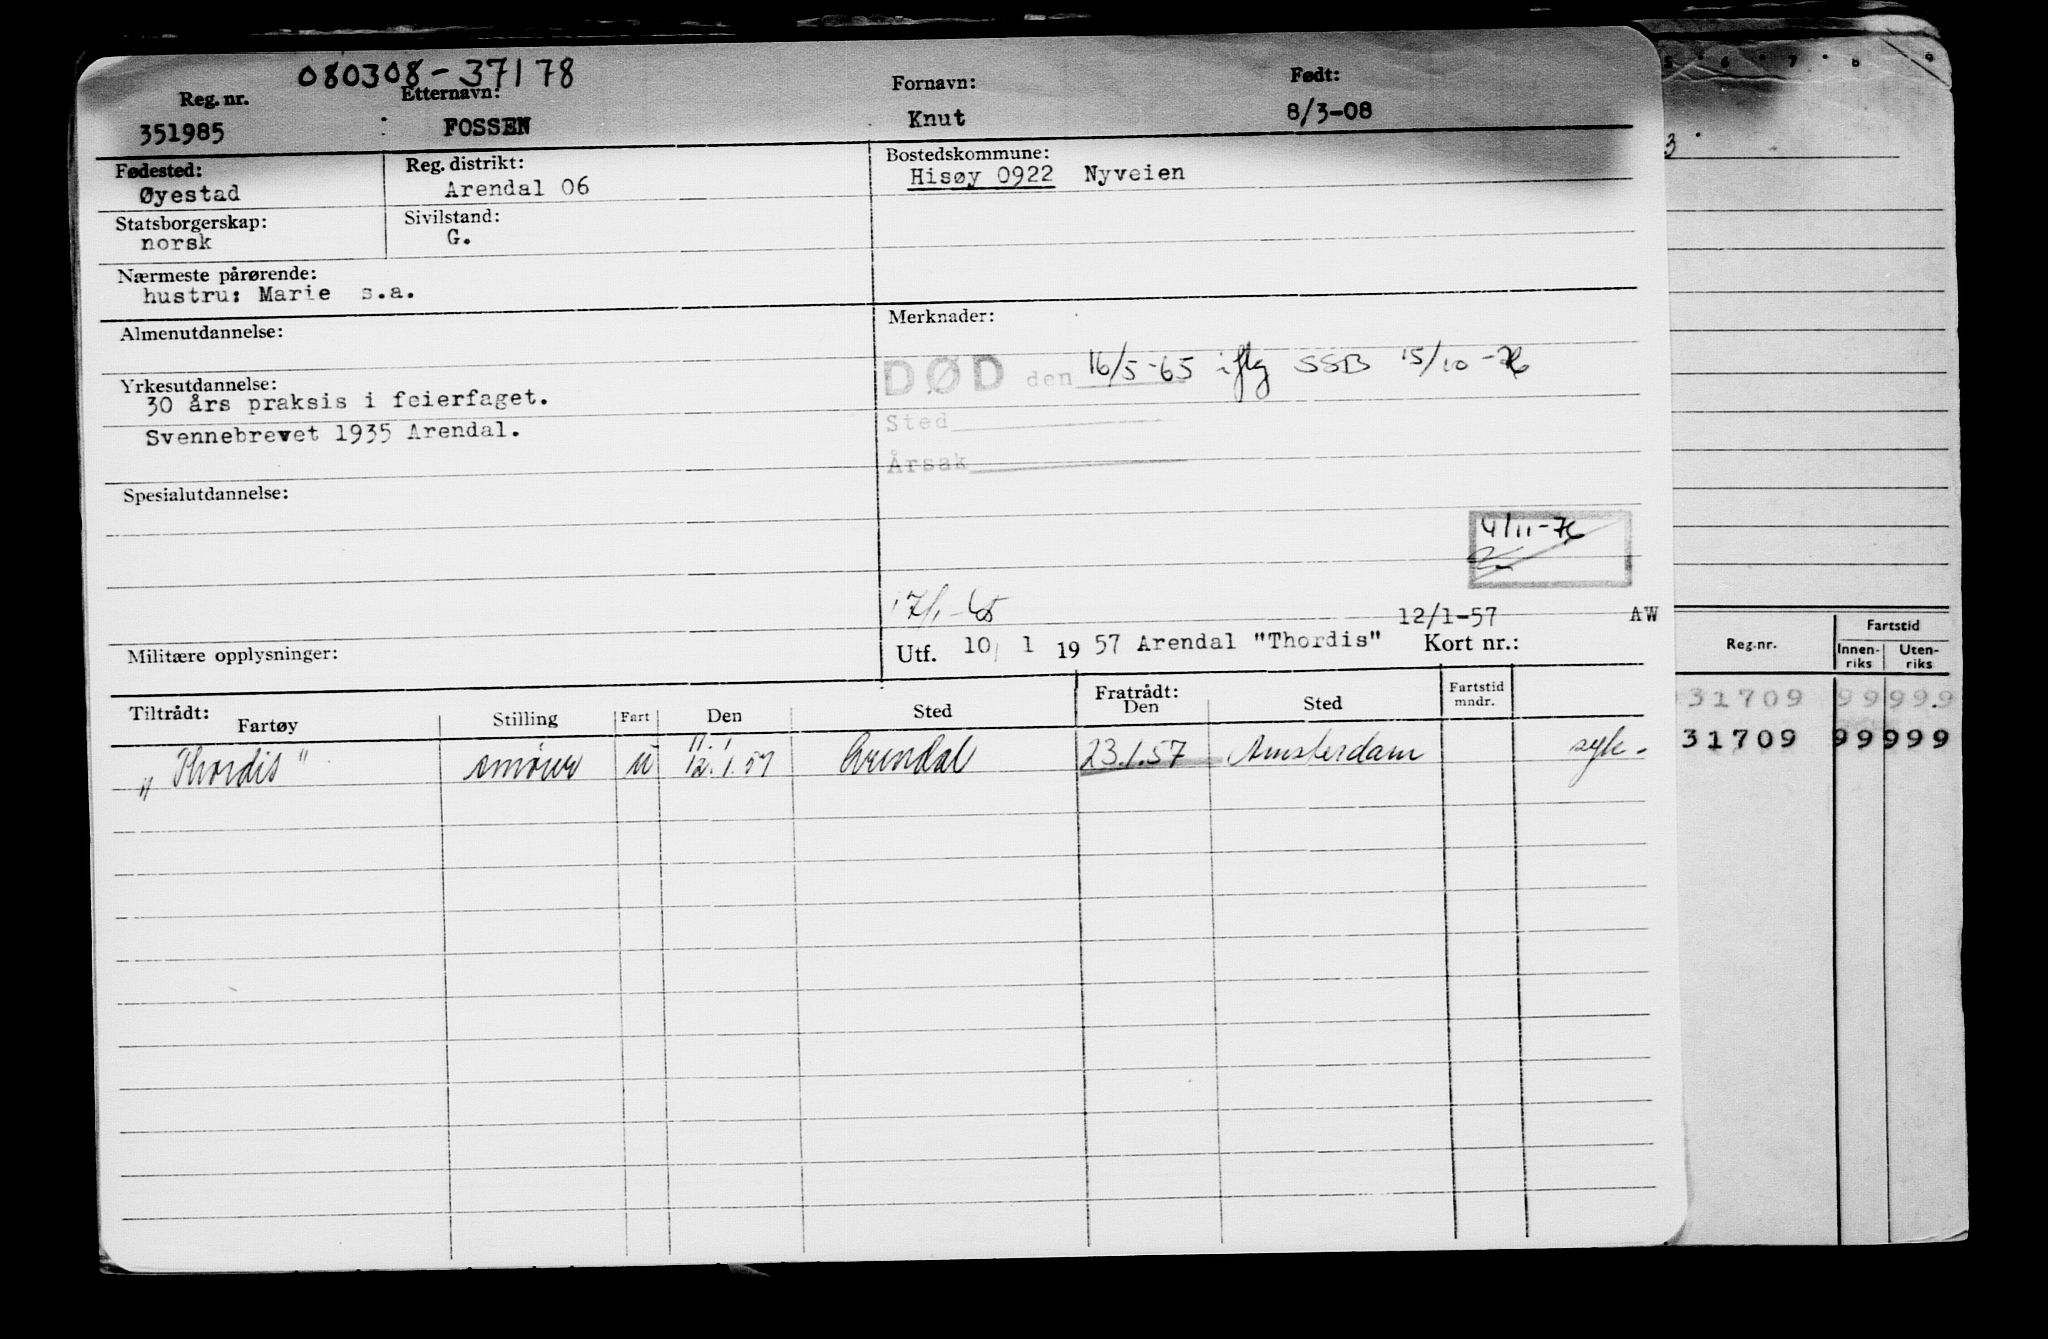 080308-37178
Reg. nr. Etternavn: Fornavn: Født:
351985 FOSSEN Knut 8/3-08
Fødested: Reg. distrikt: Bostedskommune:
Øyestad Arendal 06 Hisøy 0922 Nyveien
Statsborgerskap: Sivilstand:
norsk G.
Nærmeste pårørende:
hustru: Marie s.a.
Almenutdannelse: Merknader:
DØD den 16/5-65 iflg SSB 15/10-76
Yrkesutdannelse:
30 års praksis i feierfaget.
Sted
Svennebrevet 1935 Arendal.
Årsak
Spesialutdannelse:
4/11-76
17/1-65
12/1-57 AW
Militære opplysninger: Utf. 10/ 1 19 57 Arendal "Thordis" Kort nr.:
Tiltrådt: Fratrådt: Fartstid
Fartøy Stilling Fart Den Sted Den Sted mndr.
11.1
"Thordis" smører u 12.1.57 Arendal 23.1.57 Amsterdam syk.
5 6 7 8 9
3
Fartstid
Reg.nr. Innen- Uten-
riks riks
31709 99 99.9
31709 99999